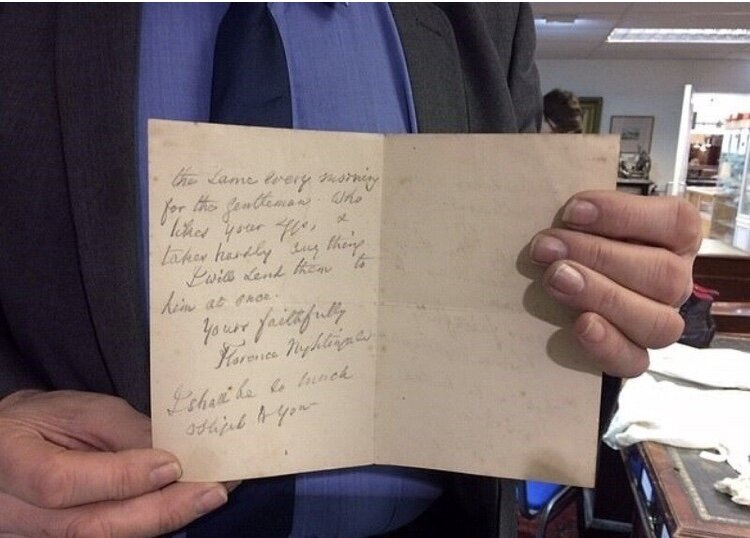 the same every morning
for the gentleman who
likes your eggs, &
takes hardly any thing
I will send them to
him at once.
Yours faithfully
Florence Nightingale
I shall be so much
obliged to you